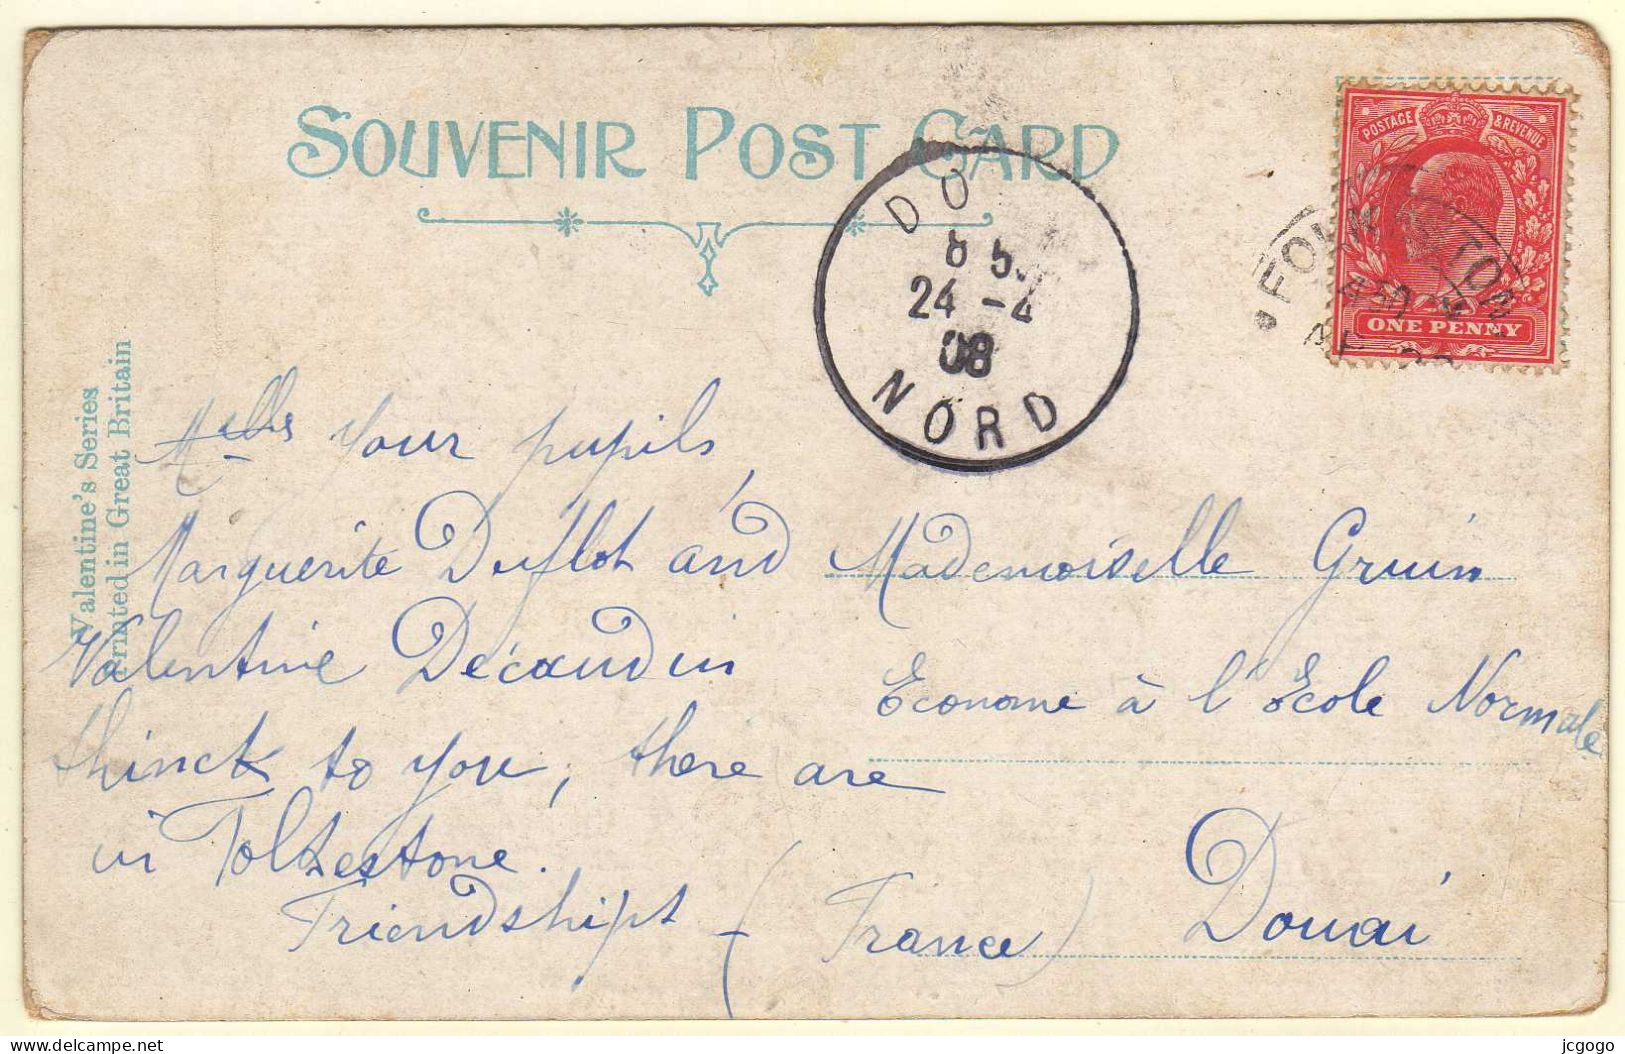 SOUVENIR POST CARD
POSTAGE & REVENUE
ONE PENNY
DO
8 5
24 -4
08
NORD
Valentine's Series
Printed in Great Britain
Melles Your pupils,
Marguerite Duflot and
Valentine Décaudin
thinck to you, there are
in Folkestone.
Friendships
Mademoiselle Gruin
Econome à l'Ecole Normale
Douai
(France)
jcgogo